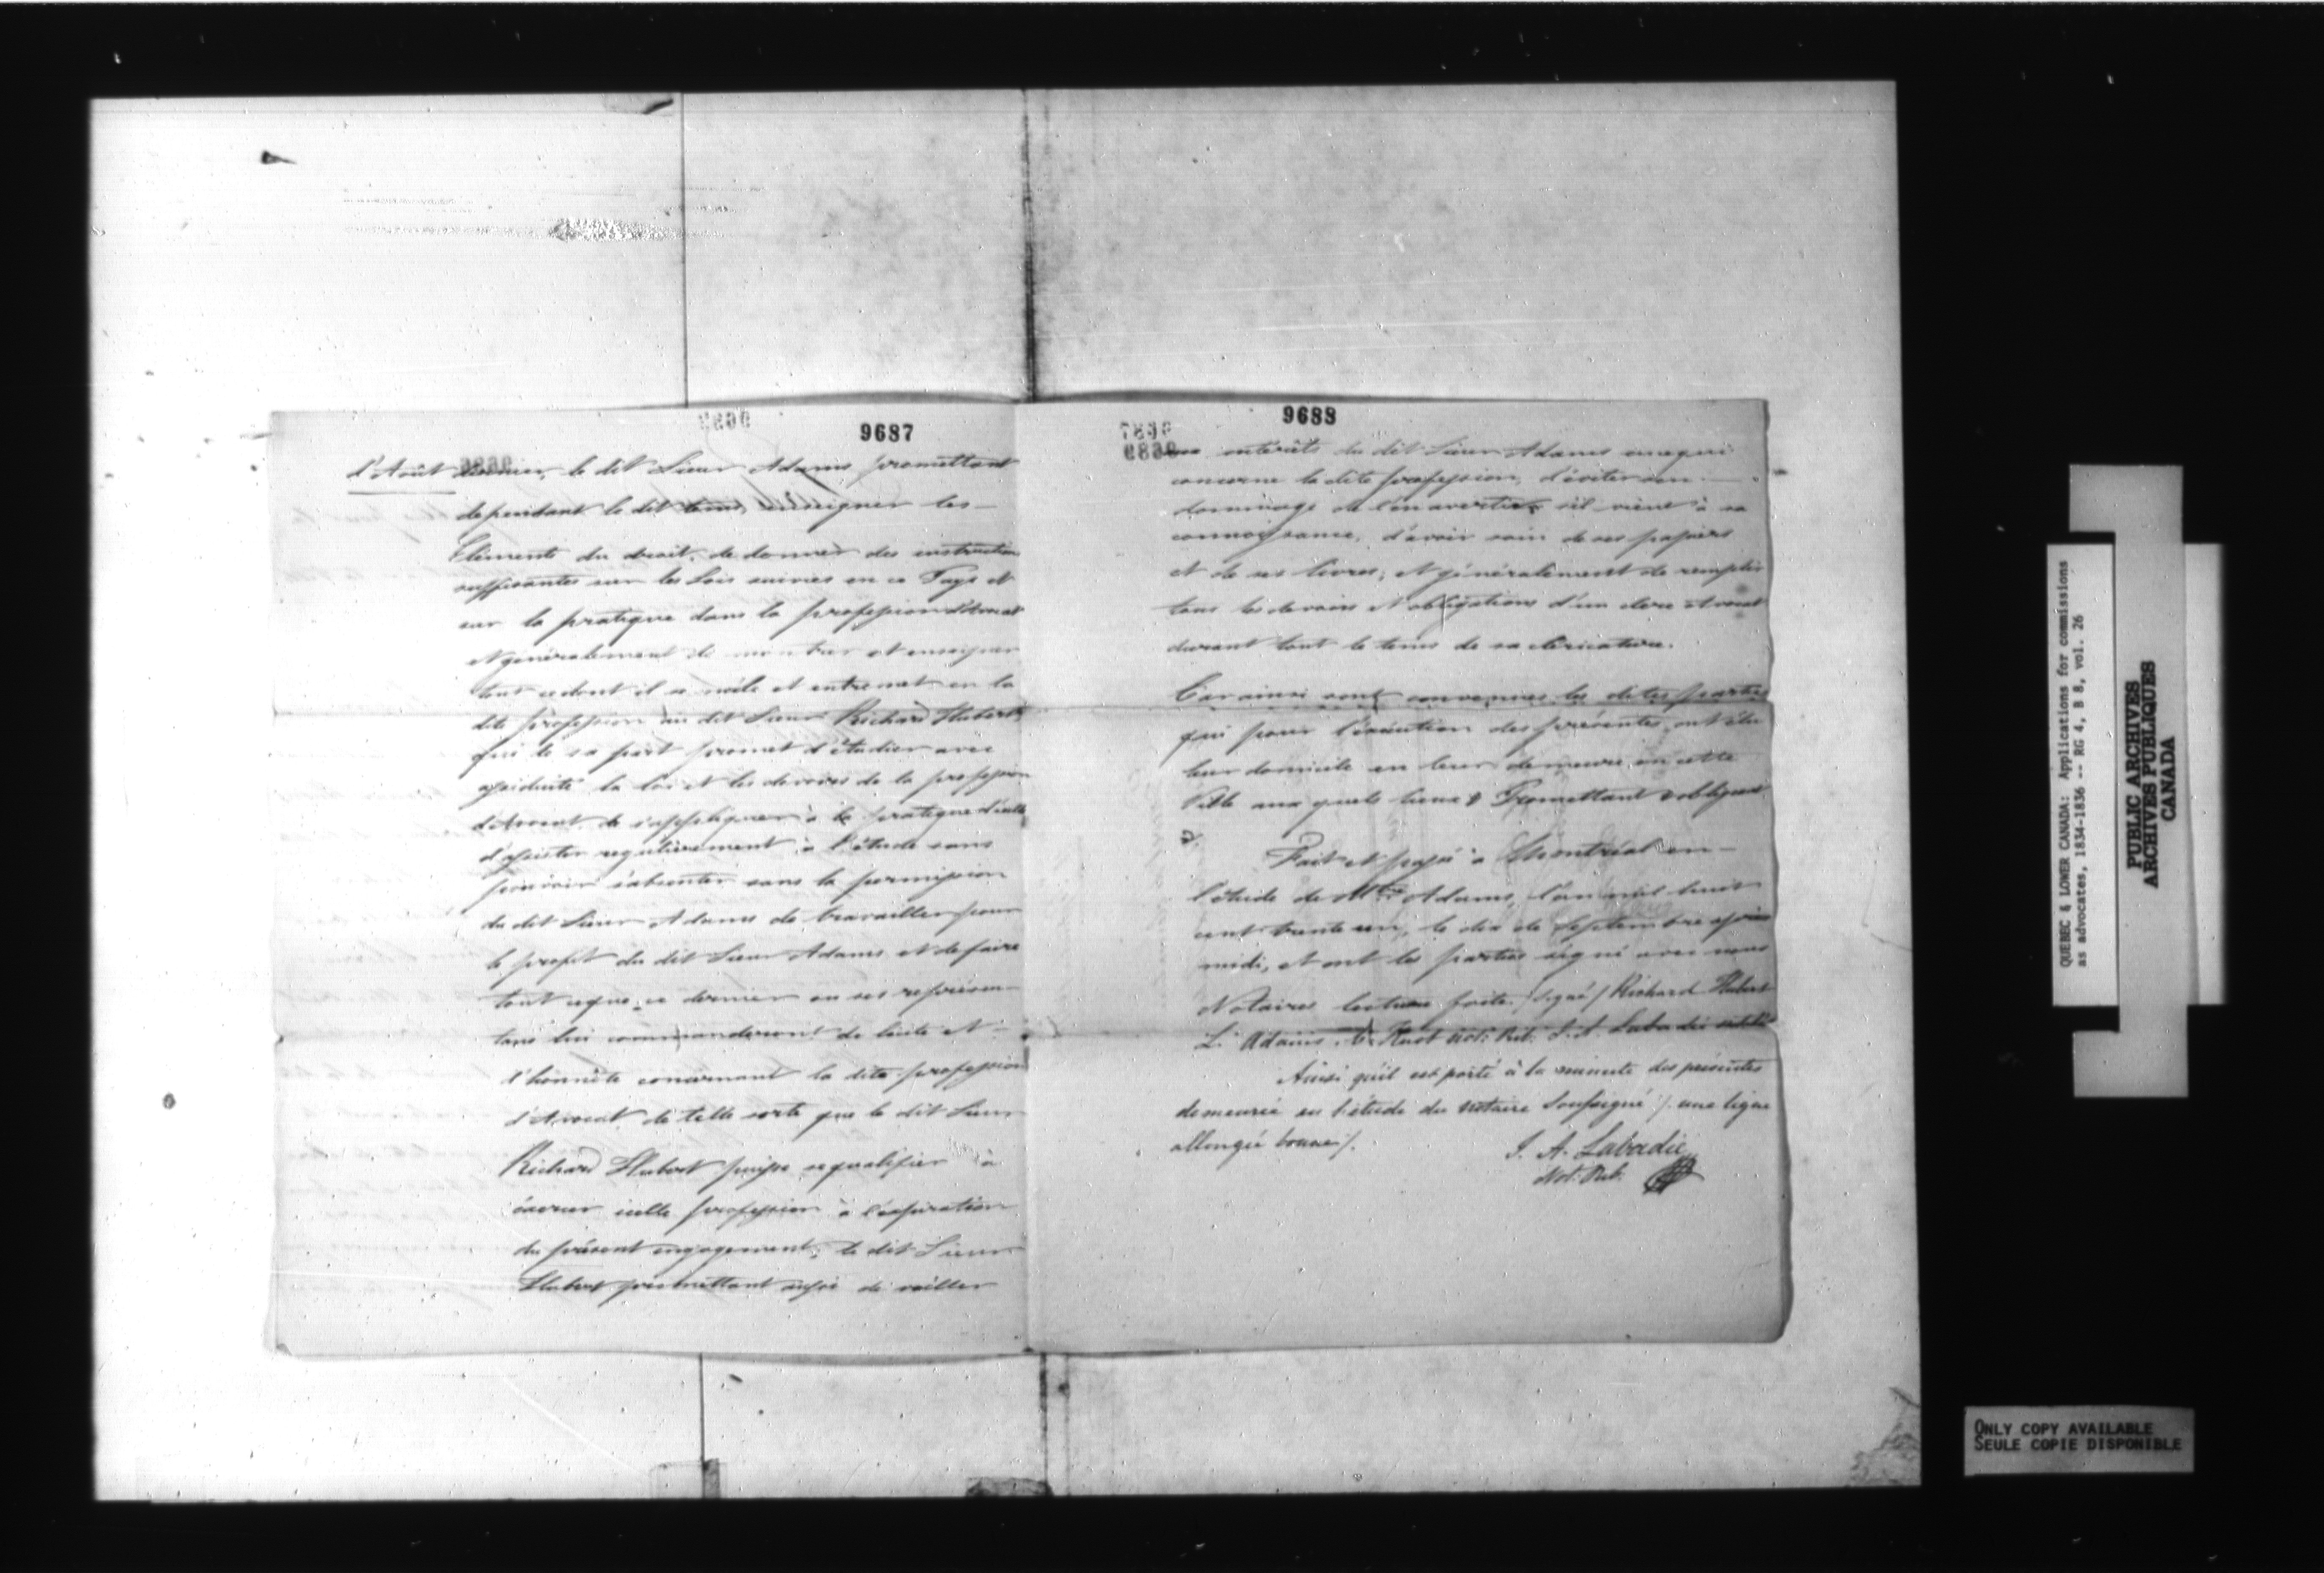 9687
d'Août dernier, le dit Sieur Adams promettant
dependant le dit tems, enseigner les
Elements du droit, de donner des instructions
suffisantes sur les Lois suivies en ce Pays et
sur la pratique dans la profession d'Avocat
et généralement de montrer et enseigner
tout ce dont il se mêle et entremet en la
dite profession au dit Sieur Richard Hubert,
qui de sa part promet d'étudier avec
assiduité la loi et les devoirs de la profession
d'Avocat, de s'appliquer à la pratique d'icelle
d'assister regulièrement à l'étude sans
pouvoir s'absenter sans la permission
du dit Sieur Adams de travailler pour
le profit du dit Sieur Adams, et de faire
tout ceque ce dernier ou ses représen-
tans lui commanderont de licite et
d'honnête concernant la dite profession
d'Avocat, de telle sorte que le dit Sieur
Richard Hubert puisse se qualifier à
exercer icelle profession à l'expiration
du présent engagement; le dit Sieur
Hubert promettant aussi de veiller
9688
aux intérêts du dit Sieur Adams en ce qui
concerne la dite profession, d'éviter son
dommage et l'en avertir s'il vient à sa
connoissance, d'avoir soin de ses papiers
et de ses livres; et généralement de remplir
tous les devoirs et obligations d'un clerc Avocat
durant tout le tems de sa cléricature.
Car ainsi sont convenues les dites parties
qui pour l'éxécution des présentes ont élu
leur domicile en leur demeure en cette
Ville aux quels lieux & Promettant & obligeant
&.
Fait et passé à Montréal en
l'étude de Mtre Adams, l'an mil huit
cent trente un, le dix de Septembre après
midi, et ont les parties signé avec nous
Notaires lecture faite. /signé/ Richard Hubert
L. Adams, Huot Not: Pub: J. A. Labadie
Ainsi qu'il est porté à la minute des présentes
demeurée en l'étude du notaire Soussigné /. une ligne
allongée bonne /.
J. A. Labadie
Not. Pub.
QUEBEC & LOWER CANADA: Applications for commissions
as advocates, 1834-1836 -- RG 4, B 8, vol. 26
PUBLIC ARCHIVES
ARCHIVES PUBLIQUES
CANADA
ONLY COPY AVAILABLE
SEULE COPIE DISPONIBLE